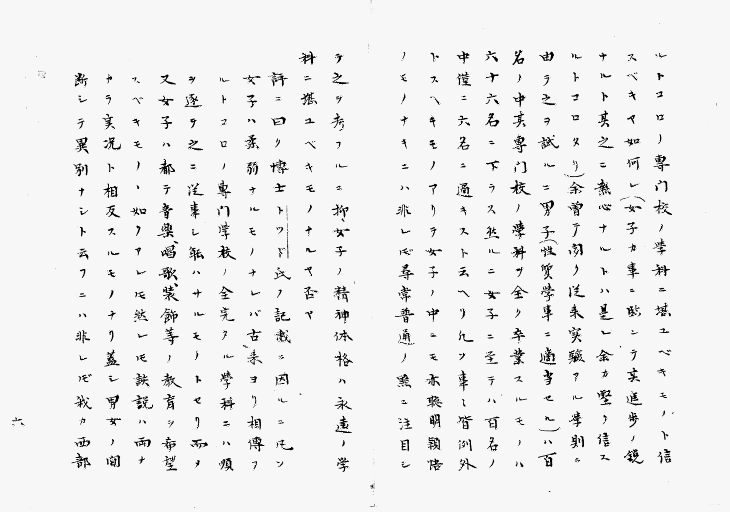 ルトコロノ専門校ノ学科ニ堪ユベキモノト信
スベキヤ如何レ(女子カ事ニ臨ンテ其進歩ノ鋭
ナルト其之ニ熱心ナルトハ是レ余カ堅ク信ス
ルトコロタリ)余曽テ聞ク従来実験アル学則ニ
由テ之ヲ試ルニ男子(性質学事ニ適当セル)ハ百
名ノ中其専門校ノ学科ヲ全ク卒業スルモノハ
六十六名ニ下ラス然ルニ女子ニ至テハ百名ノ
中僅ニ六名ニ過キスト云ヘリ凡ソ事ニ皆例外
トスヘキモノアリテ女子ノ中ニモ亦聡明穎悟
ノモノナキニハ非レ𪜈尋常普通ノ点ニ注目シ
テ之ヲ考フルニ抑女子ノ精神体格ハ永遠ノ学
科ニ堪ユベキモノナルヤ否ヤ
評ニ曰ク博士トッド氏ノ記載ニ因ルニ凡ソ
女子ハ柔弱ナルモノナレバ古来ヨリ相傳フ
ルトコロノ専門学校ノ全完タル学科ニハ順
ヲ逐テ之ニ従事シ転ハナルモノトセリ而メ
又女子ハ都テ音楽、唱歌、装飾等ノ教育ヲ希望
スベキモノヽ如クアレ𪜈然レ𪜈該説ハ両ナ
カラ実況ト相反スルモノナリ蓋シ男女ノ間
断シテ異別ナシト云フニハ非レ𪜈我カ西部
六